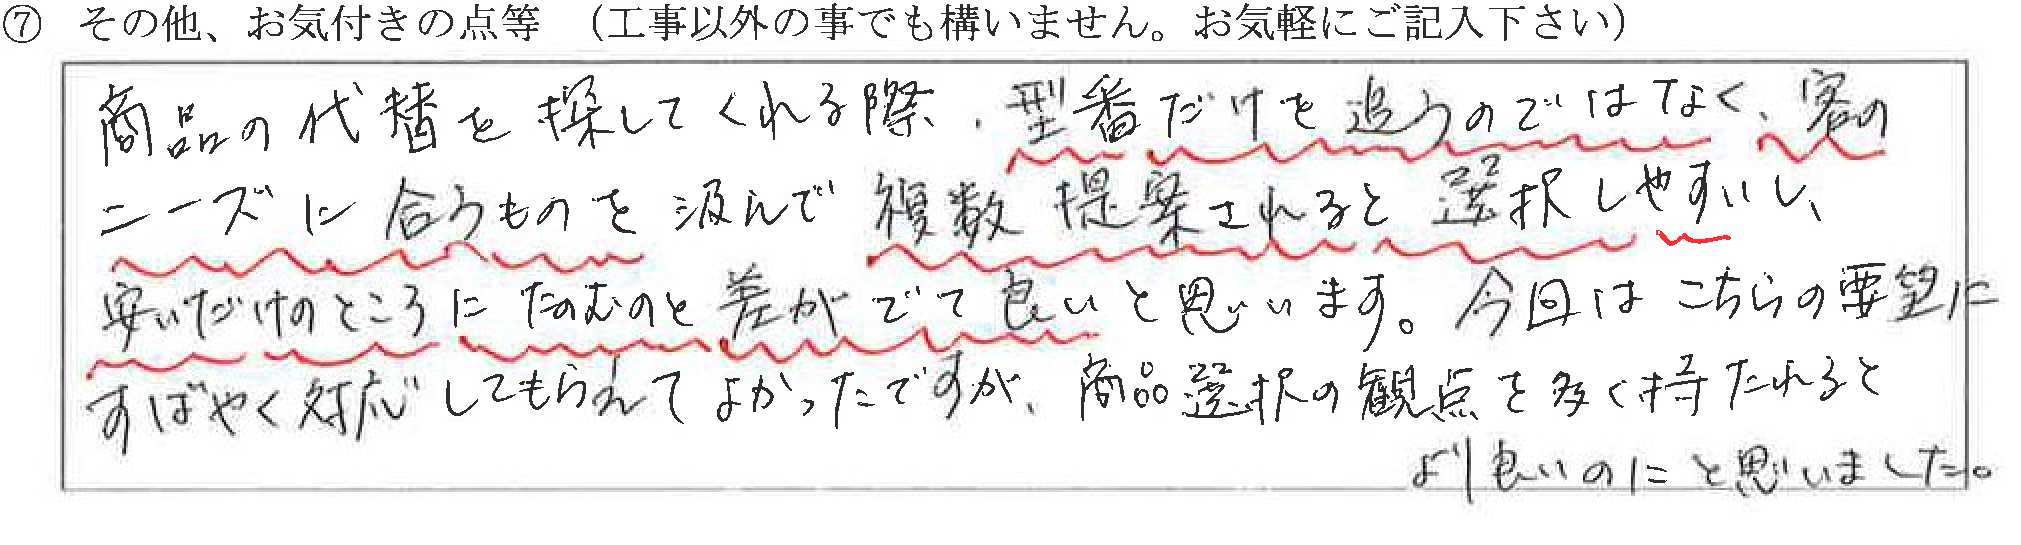 ⑦ その他、お気付きの点等 （工事以外の事でも構いません。お気軽にご記入下さい）
商品の代替を探してくれる際、型番だけを追うのではなく、客の
ニーズに合うものを汲んで複数提案されると選択しやすいし、
安いだけのところにたのむのと差がでて良いと思います。今回はこちらの要望に
すばやく対応してもらえてよかったですが、商品選択の観点を多く持たれると
より良いのにと思いました。